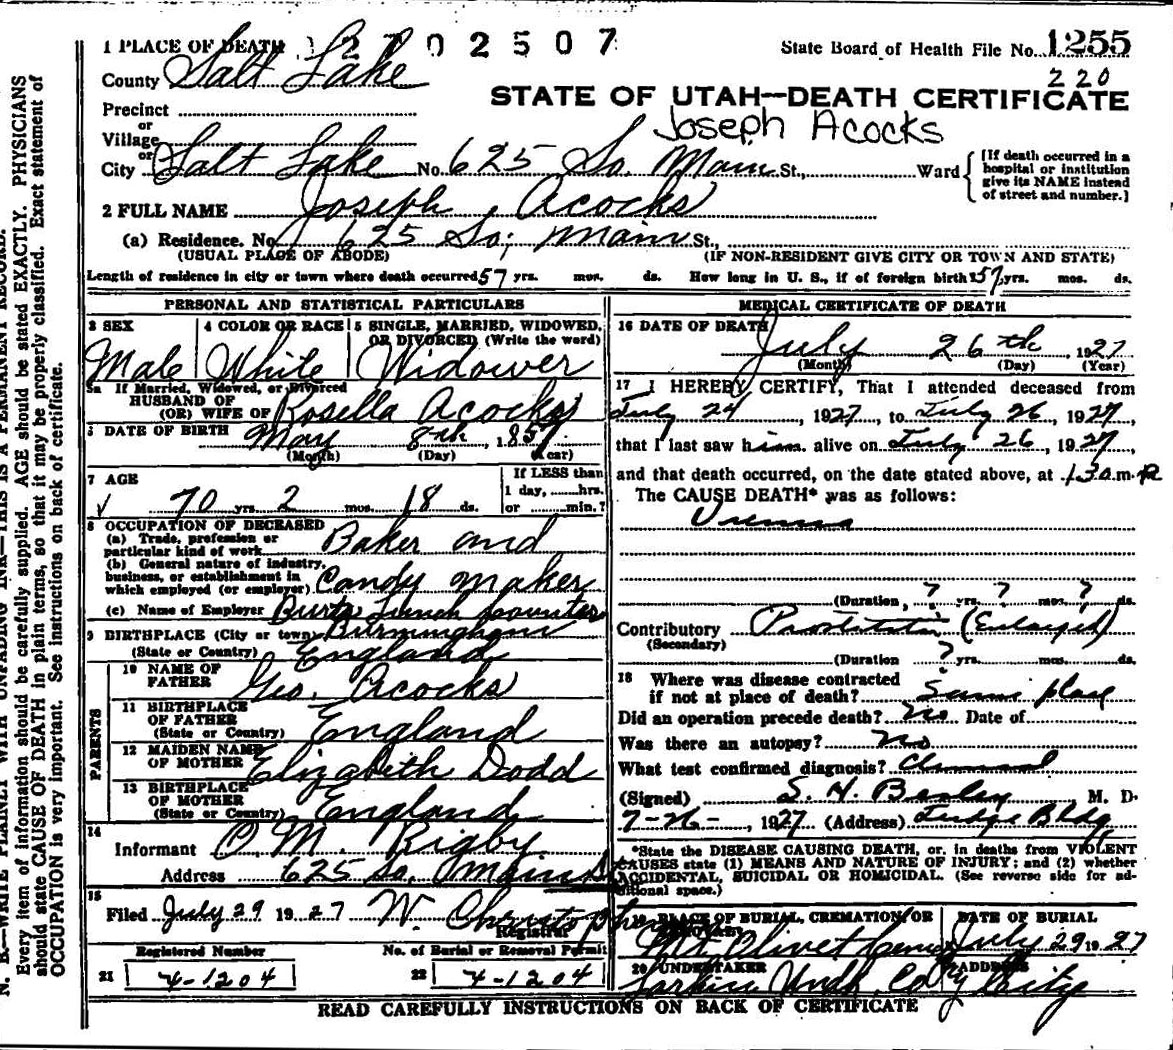 1 PLACE OF DEATH 2702507 State Board of Health File No. 1255
County Salt Lake 220
STATE OF UTAH—DEATH CERTIFICATE
Precinct
or
Village Joseph Acocks
or
City Salt Lake No. 625 So. Main St., Ward [If death occurred in a hospital or institution give its NAME instead of street and number.]
2 FULL NAME Joseph Acocks
(a) Residence. No. 625 So; Main St.,
(USUAL PLACE OF ABODE) (IF NON-RESIDENT GIVE CITY OR TOWN AND STATE)
Length of residence in city or town where death occurred 57 yrs. mos. ds. How long in U. S., if of foreign birth? 57 yrs. mos. ds.
PERSONAL AND STATISTICAL PARTICULARS
3 SEX 4 COLOR OR RACE 5 SINGLE, MARRIED, WIDOWED,
OR DIVORCED (Write the word)
Male White Widower
5a If Married, Widowed, or Divorced
HUSBAND OF
(OR) WIFE OF Rosella Acocks
6 DATE OF BIRTH May 8th, 1857.
(Month) (Day) (Year)
7 AGE If LESS than
1 day, hrs.
70 yrs. 2 mos. 18 ds. or min.?
8 OCCUPATION OF DECEASED
(a) Trade, profession or
particular kind of work Baker and
(b) General nature of industry,
business, or establishment in
which employed (or employer) Candy Maker
(c) Name of Employer
9 BIRTHPLACE (City or town) Birmingham
(State or Country) England
PARENTS
10 NAME OF
FATHER Geo. Acocks
11 BIRTHPLACE
OF FATHER
(State or Country) England
12 MAIDEN NAME
OF MOTHER Elizabeth Dodd
13 BIRTHPLACE
OF MOTHER
(State or Country) England
14
Informant O. M. Rigby
Address 625 So. Main St
15
Filed July 29 1927 W. Christopherson
Registrar
Registered Number No. of Burial or Removal Permit
21 4-1204 22 4-1204
MEDICAL CERTIFICATE OF DEATH
16 DATE OF DEATH
July 26th, 1927
(Month) (Day) (Year)
17 I HEREBY CERTIFY, That I attended deceased from
July 24, 1927, to July 26, 1927
that I last saw him alive on July 26, 1927
and that death occurred, on the date stated above, at 130 m. P
The CAUSE DEATH* was as follows:
Uremia
(Duration, ? yrs. ? mos. ? ds.
Contributory Prostatitis (Enlarged)
(Secondary)
(Duration ? yrs. mos. ds.
18 Where was disease contracted
if not at place of death? Same place
Did an operation precede death? No Date of
Was there an autopsy? No
What test confirmed diagnosis? Clinical
(Signed) S. H. M. D.
7-26-, 1927 (Address) Judge Bldg
*State the DISEASE CAUSING DEATH, or, in deaths from VIOLENT
CAUSES state (1) MEANS AND NATURE OF INJURY; and (2) whether
ACCIDENTAL, SUICIDAL OR HOMICIDAL. (See reverse side for additional space.)
19 PLACE OF BURIAL, CREMATION, OR REMOVAL DATE OF BURIAL
Mt. Olivet Cem July 29 1927
20 UNDERTAKER ADDRESS
Larkin Undt. Co City
READ CAREFULLY INSTRUCTIONS ON BACK OF CERTIFICATE
N. B.—WRITE PLAINLY WITH UNFADING INK—THIS IS A PERMANENT RECORD.
Every item of information should be carefully supplied. AGE should be stated EXACTLY. PHYSICIANS
should state CAUSE OF DEATH in plain terms, so that it may be properly classified. Exact statement of
OCCUPATION is very important. See instructions on back of certificate.